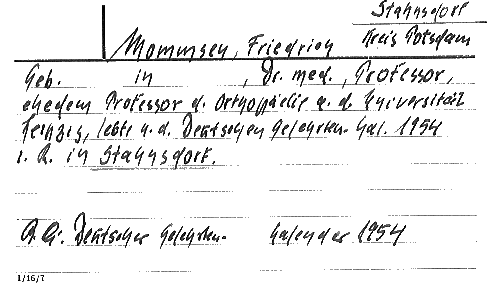 Stahnsdorf
Kreis Potsdam
Mommsen, Friedrich
Geb. in , Dr. med., Professor,
ehedem Professor d. Orthopädie a. d. Universität
Leipzig, lebte n. d. Deutschen Gelehrten-Kal. 1954
i. R. in Stahnsdorf.
Deutscher Gelehrten- Kalender 1954
1/16/7